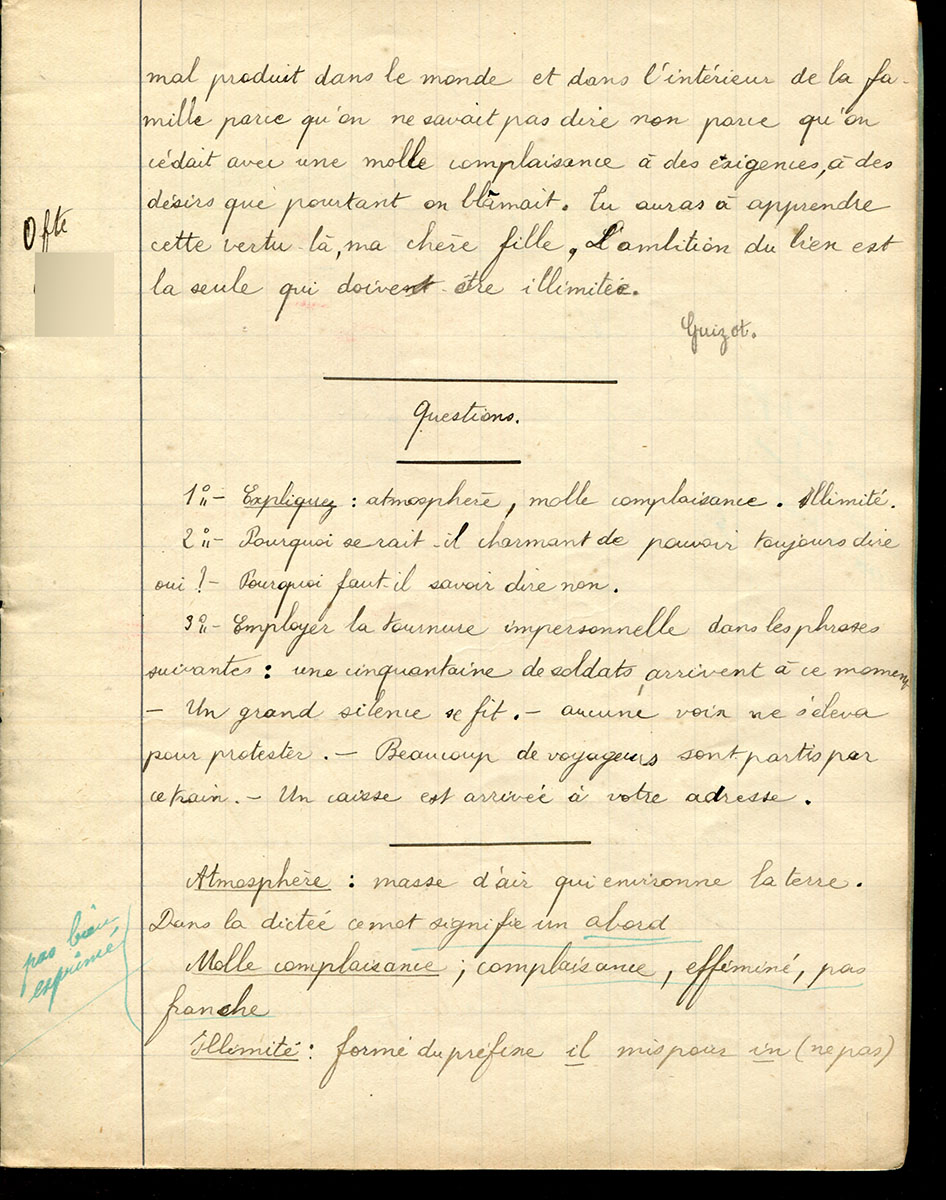 mal produit dans le monde et dans l'intérieur de la fa-
mille parce qu'on ne savait pas dire non parce qu'on
cédait avec une molle complaisance à des exigences, à des
désirs que pourtant on blâmait. Tu auras à apprendre
0 fte
cette vertu-là, ma chère fille, L'ambition du bien est
la seule qui doivent être illimitée.
Guizot.
Questions.
1º - Expliquez : atmosphère, molle complaisance. Illimité.
2º - Pourquoi serait-il charmant de pouvoir toujours dire
oui ? - Pourquoi faut-il savoir dire non.
3º - Employer la tournure impersonnelle dans les phrases
suivantes : une cinquantaine de soldats arrivent à ce moment
- Un grand silence se fit. - aucune voix ne s'éleva
pour protester. - Beaucoup de voyageurs sont partis par
ce train. - Un caisse est arrivée à votre adresse.
Atmosphère : masse d'air qui environne la terre.
Dans la dictée ce mot signifie un abord
pas bien
exprimé
Molle complaisance ; complaisance, efféminé, pas
franche
Illimité : formé du préfixe il mis pour in (ne pas)